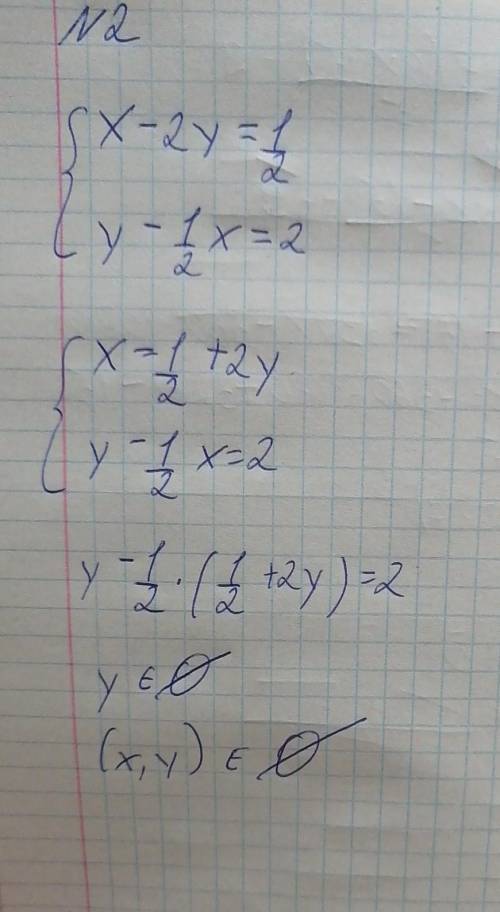 N2
x - 2y = 1/2
y - 1/2 x = 2
x = 1/2 + 2y
y - 1/2 x = 2
y - 1/2 · (1/2 + 2y) = 2
y ∈ ∅
(x, y) ∈ ∅